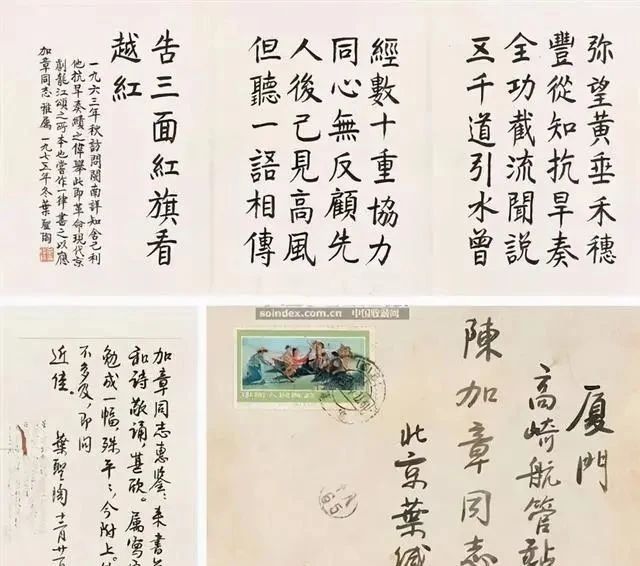 弥望黄垂禾穗
豐從知抗旱奏
全功截流聞説
五千道引水曾
經數十重協力
同心無反顧先
人後己見高風
但聽一語相傳
告三面紅旗看
越紅
一九六三年秋訪問閩南詳知舍己利
他抗旱奏績之偉舉此即革命現代京
劇龍江頌之所本也嘗作一律書之以應
加章同志雅属 一九七五年冬葉聖陶
加章同志惠鑒：来書
和诗敬诵，甚欣。属寫
勉成一幅，殊平平，今附上
不多及，即问
近佳。
葉聖陶 十二月廿
soindex.com.cn 中国收藏网
中国人民邮政
厦門
高崎航管站
陳加章同志
北京葉缄